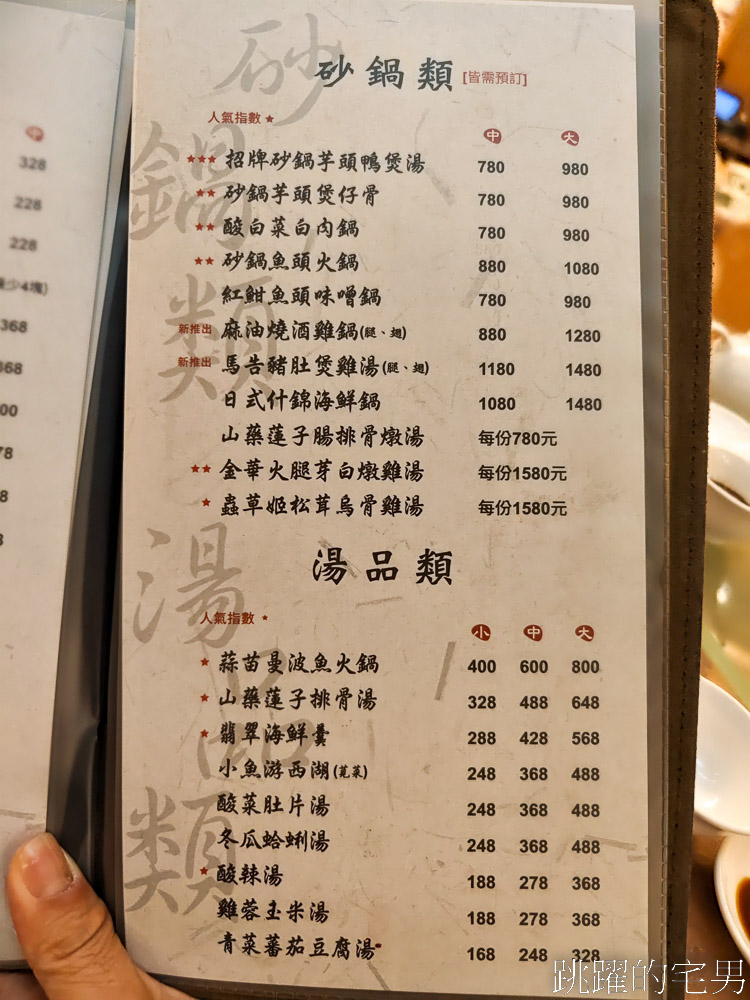 砂鍋類 [皆需預訂]
人氣指數★ 中 大
★★★ 招牌砂鍋芋頭鴨煲湯 780 980
★★ 砂鍋芋頭煲仔骨 780 980
★★ 酸白菜白肉鍋 780 980
★★ 砂鍋魚頭火鍋 880 1080
紅魽魚頭味噌鍋 780 980
新推出 麻油燒酒雞鍋(腿、翅) 880 1280
新推出 馬告豬肚煲雞湯(腿、翅) 1180 1480
日式什錦海鮮鍋 1080 1480
山藥蓮子腸排骨燉湯 每份780元
★★ 金華火腿芽白燉雞湯 每份1580元
★ 蟲草姬松茸烏骨雞湯 每份1580元
湯品類
人氣指數 ★ 小 中 大
★ 蒜苗曼波魚火鍋 400 600 800
★ 山藥蓮子排骨湯 328 488 648
★ 翡翠海鮮羹 288 428 568
小魚游西湖(莧菜) 248 368 488
酸菜肚片湯 248 368 488
冬瓜蛤蜊湯 248 368 488
★ 酸辣湯 188 278 368
雞蓉玉米湯 188 278 368
青菜蕃茄豆腐湯 168 248 328
砂鍋類
湯品類
中
328
228
228
少4塊)
368
368
00
78
8
跳躍的宅男